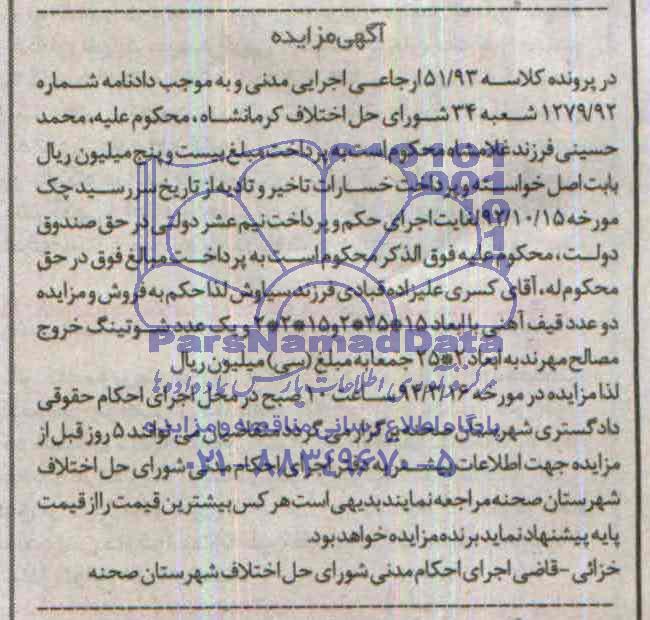 آگهی مزایده
در پرونده کلاسه ۵۱/۹۳ ارجاعی اجرایی مدنی و به موجب دادنامه شماره
۱۲۷۹/۹۲ شعبه ۳۴ شورای حل اختلاف کرمانشاه، محکوم علیه، محمد
حسینی فرزند غلامشاه محکوم است به پرداخت مبلغ بیست و پنج میلیون ریال
بابت اصل خواسته و پرداخت خسارات تاخیر و تادیه از تاریخ سررسید چک
مورخه ۹۲/۱۰/۱۵ لغایت اجرای حکم و پرداخت نیم عشر دولتی در حق صندوق
دولت، محکوم علیه فوق الذکر محکوم است به پرداخت مبالغ فوق در حق
محکوم له، آقای کسری علیزاده قبادی فرزند سیاوش لذا حکم به فروش و مزایده
دو عدد قیف آهنی با ابعاد ۱۵*۲۵*۲ و ۱۵*۲*۲ و یک عدد شوتینگ خروج
مصالح مهرند به ابعاد ۲*۲۵ جمعا به مبلغ (سی) میلیون ریال
لذا مزایده در مورخه ۹۳/۳/۱۶ ساعت ۱۰ صبح در محل اجرای احکام حقوقی
دادگستری شهرستان صحنه برگزار می گردد متقاضیان می توانند ۵ روز قبل از
مزایده جهت اطلاعات به دفتر اجرای احکام مدنی شورای حل اختلاف
شهرستان صحنه مراجعه نمایند بدیهی است هر کس بیشترین قیمت را از قیمت
پایه پیشنهاد نماید برنده مزایده خواهد بود.
خزائی - قاضی اجرای احکام مدنی شورای حل اختلاف شهرستان صحنه
ParsNamadData
مرکز فرآوری اطلاعات پارس نماد داده ها
پایگاه اطلاع رسانی مناقصه و مزایده
۰۲۱-۸۸۳۴۹۶۷۰-۵